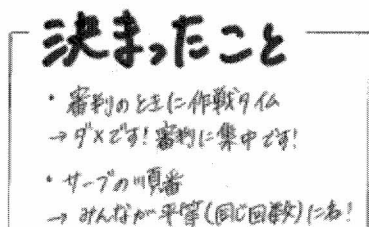 決まったこと
・審判のときに作戦タイム
→ダメです！審判に集中です！
・サーブの順番
→みんなが平等(同じ回数)に！